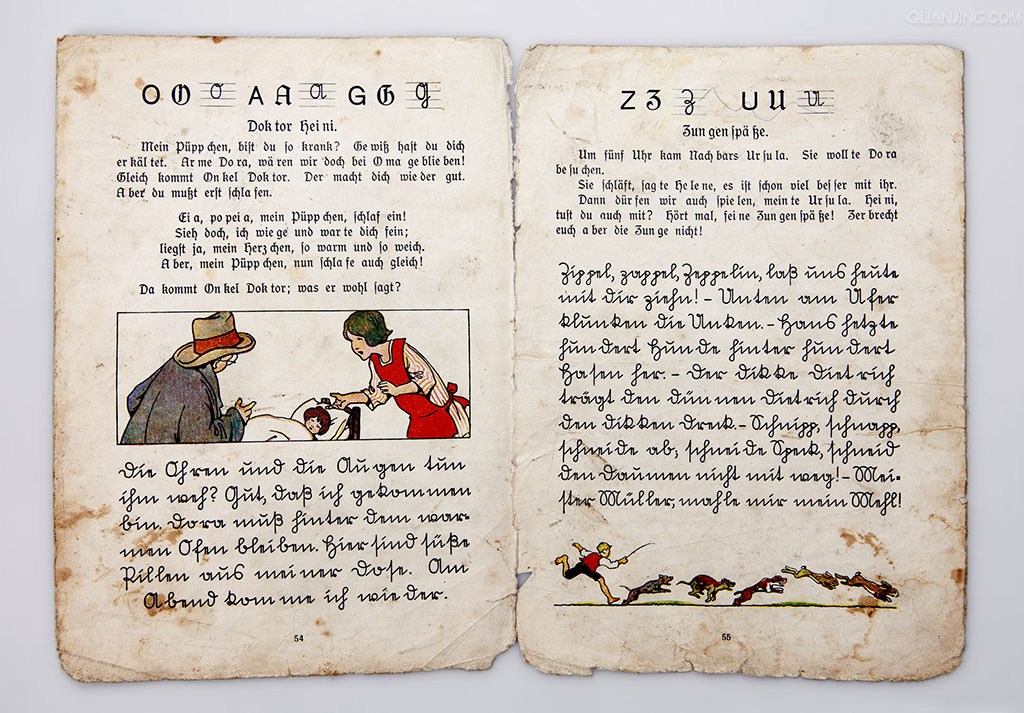 QUANJING.COM
O O O A A A G G G
Dok tor Hei ni.
Mein Püpp chen, biſt du ſo krank? Ge wiß haſt du dich
er käl tet. Ar me Do ra, wä ren wir doch bei O ma ge blie ben!
Gleich kommt On kel Dok tor. Der macht dich wie der gut.
A ber du mußt erſt ſchla fen.
Ei a, po pei a, mein Püpp chen, ſchlaf ein!
Sieh doch, ich wie ge und war te dich fein;
liegſt ja, mein Herz chen, ſo warm und ſo weich.
A ber, mein Püpp chen, nun ſchla fe auch gleich!
Da kommt On kel Dok tor; was er wohl ſagt?
Die Ohren und die Au gen tun
ihm weh? Gut, daß ich gekommen
bin. Dora muß hinter dem war-
men Ofen bleiben. Hier sind süße
Pillen aus meiner Dose. Am
Abend kom me ich wie der.
54
Z Z Z U U U
Zun gen ſpä ße.
Um fünf Uhr kam Nach bars Ur ſu la. Sie woll te Do ra
be ſu chen.
Sie ſchläft, ſag te He le ne, es iſt ſchon viel beſ ſer mit ihr.
Dann dür fen wir auch ſpie len, mein te Ur ſu la. Hei ni,
tuſt du auch mit? Hört mal, fei ne Zun gen ſpä ße! Zer brecht
euch a ber die Zun ge nicht!
Zippel, zappel, Zeppelin, laß uns heute
mit dir ziehn! – Unten am Ufer
klunken die Unken. – Hans hetzte
hun dert Hun de hinter hun dert
Hasen her. – Der dikke Diet rich
trägt den dün nen Diet rich durch
den dik ken Dreck. – Schnipp, schnapp,
schneide ab; schneide Speck, schneid
den Daumen nicht mit weg! – Mei-
ster Müller, mahle mir mein Mehl!
55